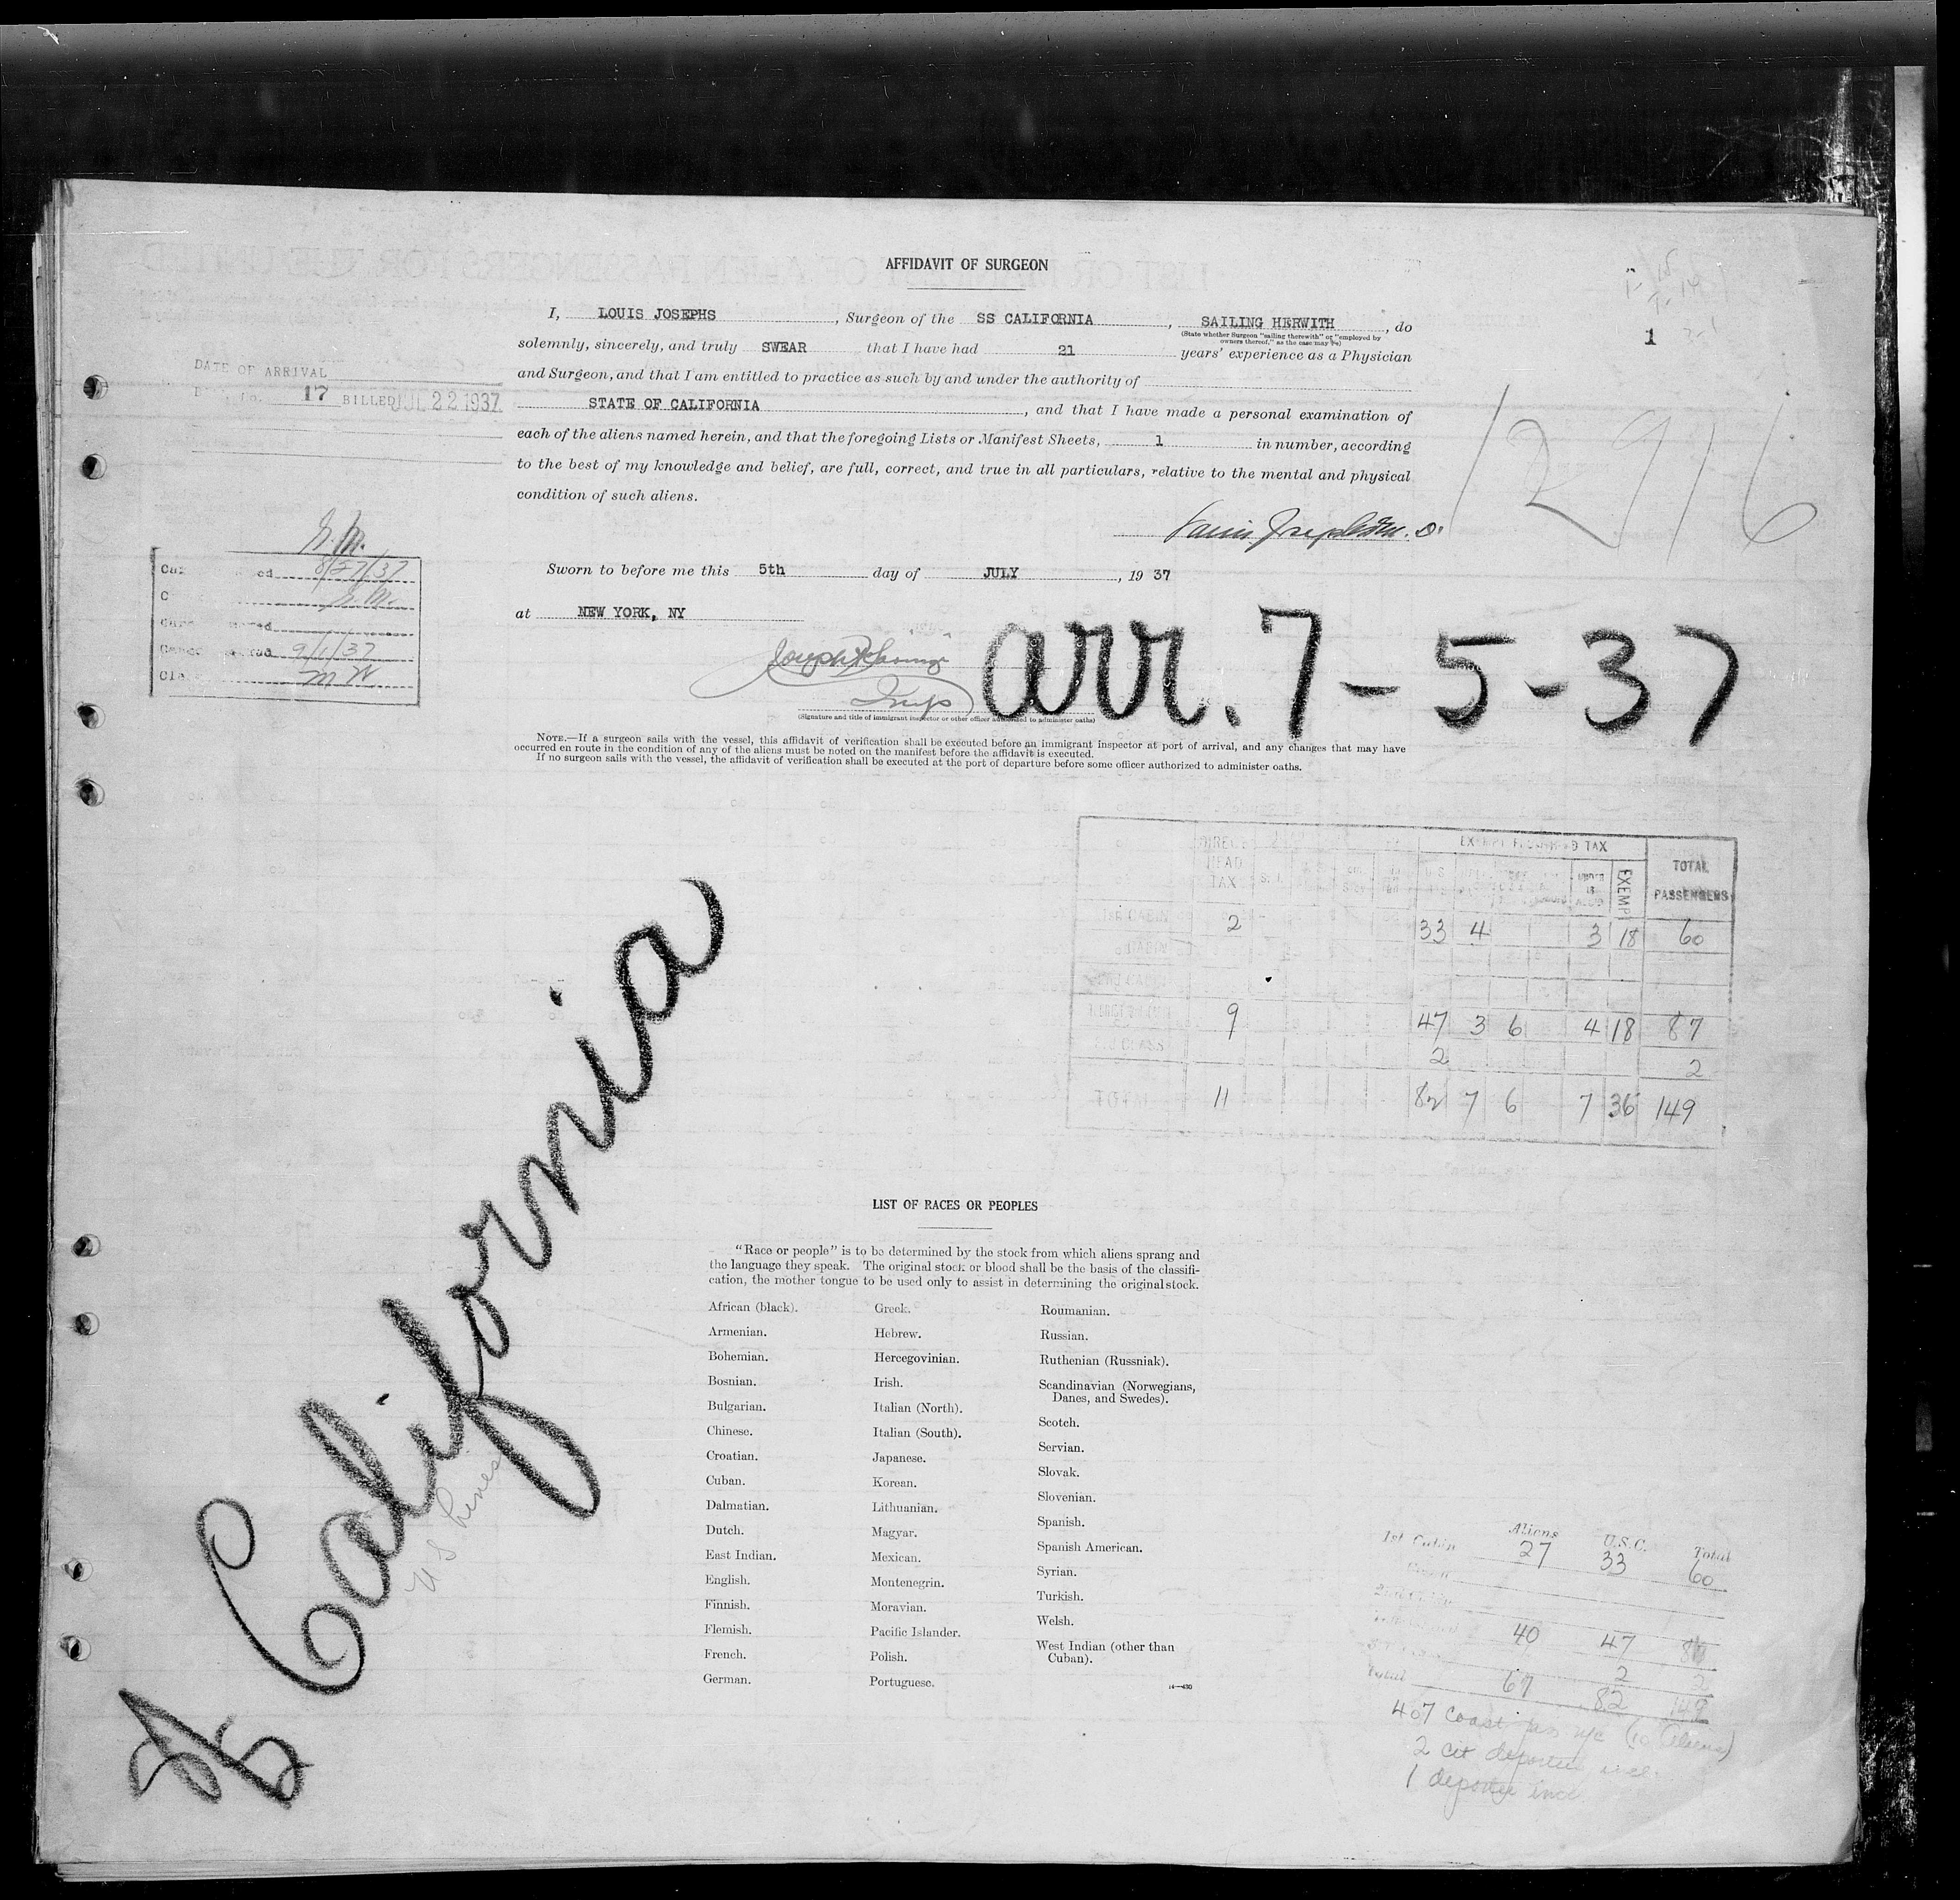 AFFIDAVIT OF SURGEON
I, LOUIS JOSEPHS, Surgeon of the SS CALIFORNIA, SAILING HERWITH, do
(State whether Surgeon "sailing therewith" or "employed by
owners thereof," as the case may be)
1
solemnly, sincerely, and truly SWEAR that I have had 21 years' experience as a Physician
and Surgeon, and that I am entitled to practice as such by and under the authority of
STATE OF CALIFORNIA, and that I have made a personal examination of
each of the aliens named herein, and that the foregoing Lists or Manifest Sheets, 1 in number, according
to the best of my knowledge and belief, are full, correct, and true in all particulars, relative to the mental and physical
condition of such aliens.
DATE OF ARRIVAL
17 BILLED JUL 22 1937
12916
Louis Josephs M. D.
Sworn to before me this 5th day of JULY, 19 37
at NEW YORK, NY
8/27/37
9/1/37
arr. 7-5-37
Insp
(Signature and title of immigrant inspector or other officer authorized to administer oaths)
NOTE.—If a surgeon sails with the vessel, this affidavit of verification shall be executed before an immigrant inspector at port of arrival, and any changes that may have
occurred en route in the condition of any of the aliens must be noted on the manifest before the affidavit is executed.
If no surgeon sails with the vessel, the affidavit of verification shall be executed at the port of departure before some officer authorized to administer oaths.
DIRECT HEAD TAX
U S
UNDER 16
EXEMPT
TOTAL PASSENGERS
1ST CABIN 2 33 4 3 18 60
9 47 3 6 4 18 87
2 2
TOTAL 11 82 7 6 7 36 149
California
US Lines
LIST OF RACES OR PEOPLES
"Race or people" is to be determined by the stock from which aliens sprang and
the language they speak. The original stock or blood shall be the basis of the classifi-
cation, the mother tongue to be used only to assist in determining the original stock.
African (black).
Armenian.
Bohemian.
Bosnian.
Bulgarian.
Chinese.
Croatian.
Cuban.
Dalmatian.
Dutch.
East Indian.
English.
Finnish.
Flemish.
French.
German.
Greek.
Hebrew.
Hercegovinian.
Irish.
Italian (North).
Italian (South).
Japanese.
Korean.
Lithuanian.
Magyar.
Mexican.
Montenegrin.
Moravian.
Pacific Islander.
Polish.
Portuguese.
Roumanian.
Russian.
Ruthenian (Russniak).
Scandinavian (Norwegians,
Danes, and Swedes).
Scotch.
Servian.
Slovak.
Slovenian.
Spanish.
Spanish American.
Syrian.
Turkish.
Welsh.
West Indian (other than
Cuban).
Aliens U.S.C. Total
1st Cabin 27 33 60
40 47
2 2
Total 67 82 149
407 coast (10 Aliens)
2 cit
1 deportee incl.